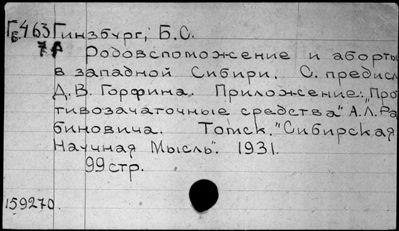 Г6.463 Гинзбург, Б.С.
7А Родовспоможение и аборты
в западной Сибири. С. предисл
Д.В. Горфина. Приложение: „Про
тивозачаточные средства" А.Л. Ра
биновича. Томск. "Сибирская
Научная Мысль". 1931.
99 стр.
159270.